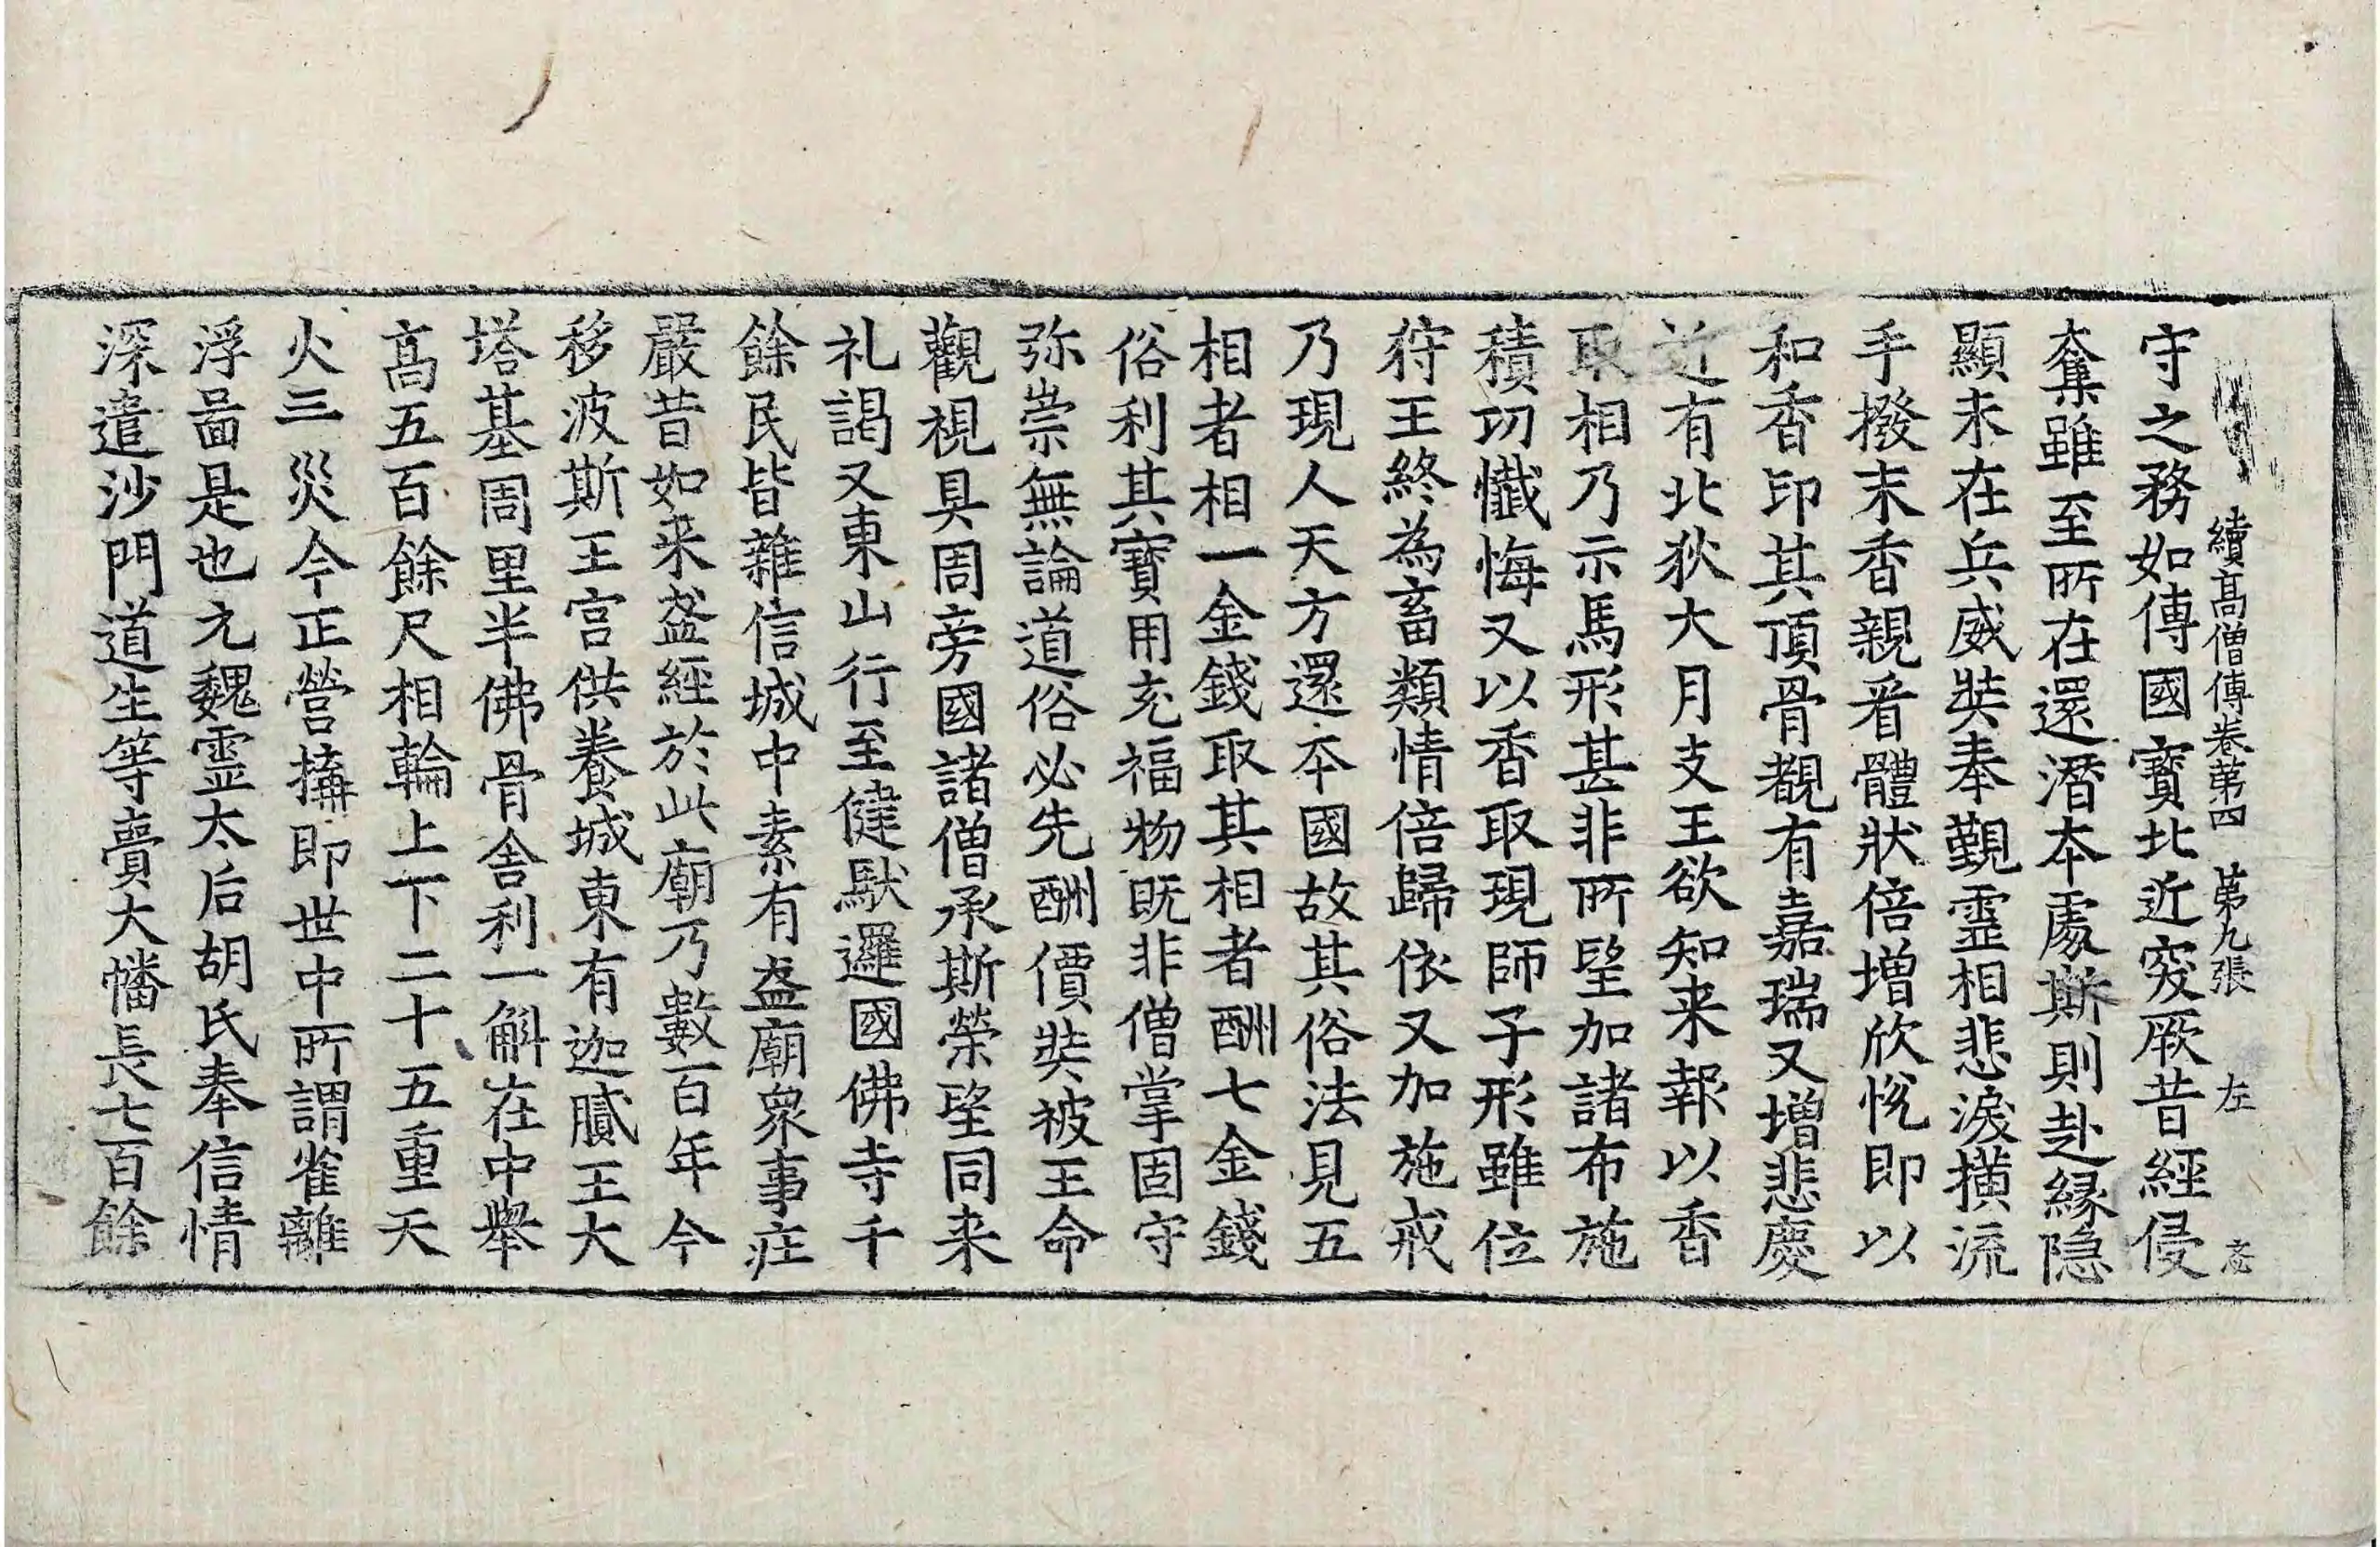 續髙僧傳卷苐四　苐九張　左
守之務如傳國寶北近突厥昔經侵
奪雖至所在還潛本處斯則赴縁隐
顯未在兵威奘奉觐霊相悲淚横流
手撥末香親看體狀倍増欣恱即以
和香印其頂骨覩有嘉瑞又増悲慶
近有北狄大月支王欲知来報以香
取相乃示馬形甚非所望加諸布施
積功懴悔又以香取現師子形雖位
狩王終為畜類情倍歸依又加施戒
乃現人天方還夲國故其俗法見五
相者相一金錢取其相者酬七金錢
俗利其寶用充福物既非僧掌固守
弥崇無論道俗必先酬價奘被王命
觀視具周旁國諸僧承斯榮望同来
礼謁又東山行至健馱邏國佛寺千
餘民皆雜信城中素有盋廟衆事庄
嚴昔如来盋經於此廟乃數百年今
移波斯王宫供養城東有迦膩王大
塔基周里半佛骨舍利一斛在中舉
髙五百餘尺相輪上下二十五重天
火三災今正營搆即世中所謂雀離
浮啚是也元魏霊太后胡氏奉信情
深遣沙門道生等賷大幡長七百餘